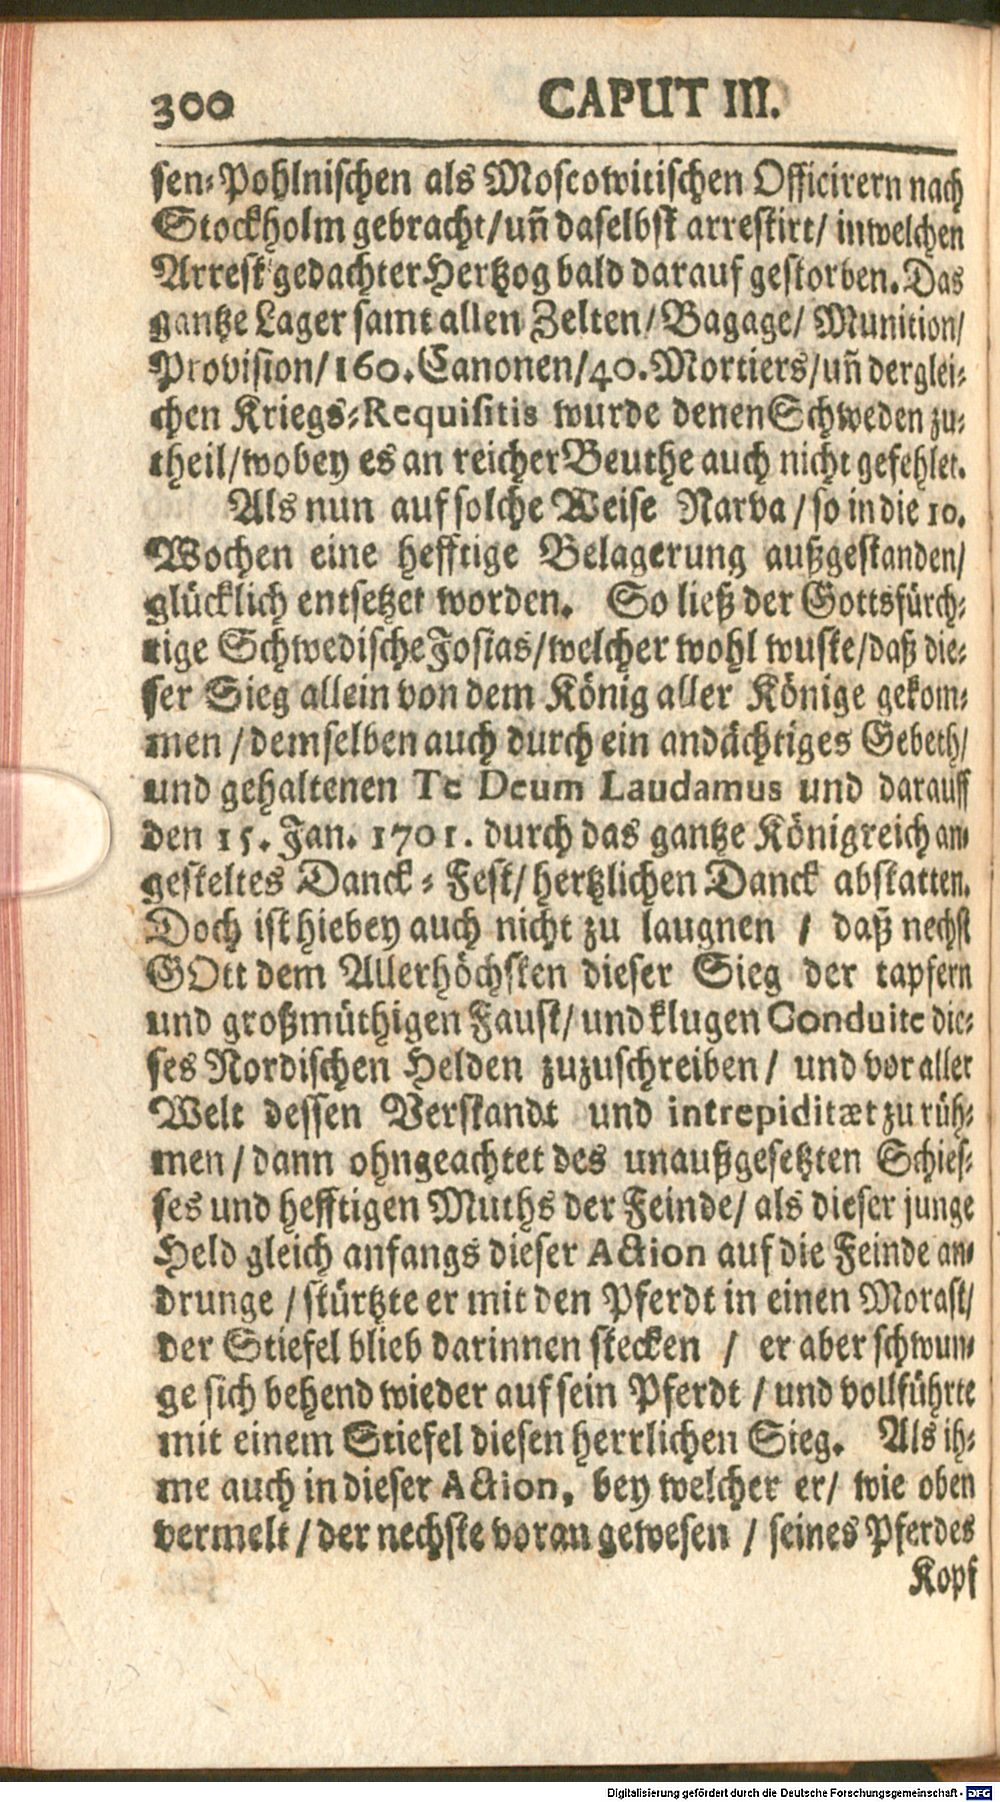 300 CAPUT III.
sen-Pohlnischen als Moscowitischen Officirern nach
Stockholm gebracht/ uñ daselbst arrestirt/ in welchen
Arrest gedachter Hertzog bald darauf gestorben. Das
gantze Lager samt allen Zelten/ Bagage/ Munition/
Provision/ 160. Canonen/ 40. Mortiers/ uñ derglei-
chen Kriegs-Requisitis wurde denen Schweden zu-
theil/ wobey es an reicher Beuthe auch nicht gefehlet.
Als nun auf solche Weise Narva / so in die 10.
Wochen eine hefftige Belagerung außgestanden/
glücklich entsetzet worden. So ließ der Gottsfürch-
tige Schwedische Josias/ welcher wohl wuste/ daß die-
ser Sieg allein von dem König aller Könige gekom-
men / demselben auch durch ein andächtiges Gebeth/
und gehaltenen Te Deum Laudamus und darauff
den 15. Jan. 1701. durch das gantze Königreich an-
gesteltes Danck-Fest/ hertzlichen Danck abstatten.
Doch ist hiebey auch nicht zu laugnen / daß nechst
GOtt dem Allerhöchsten dieser Sieg der tapfern
und großmüthigen Faust/ und klugen Conduite die-
ses Nordischen Helden zuzuschreiben / und vor aller
Welt dessen Verstandt und intrepiditæt zu rüh-
men / dann ohngeachtet des unaußgesetzten Schies-
ses und hefftigen Muths der Feinde/ als dieser junge
Held gleich anfangs dieser Action auf die Feinde an-
drunge / stürtzte er mit den Pferdt in einen Morast/
der Stiefel blieb darinnen stecken / er aber schwun-
ge sich behend wieder auf sein Pferdt / und vollführte
mit einem Stiefel diesen herrlichen Sieg. Als ih-
me auch in dieser Action, bey welcher er/ wie oben
vermelt / der nechste voran gewesen / seines Pferdes
Kopf
Digitalisierung gefördert durch die Deutsche Forschungsgemeinschaft - DFG